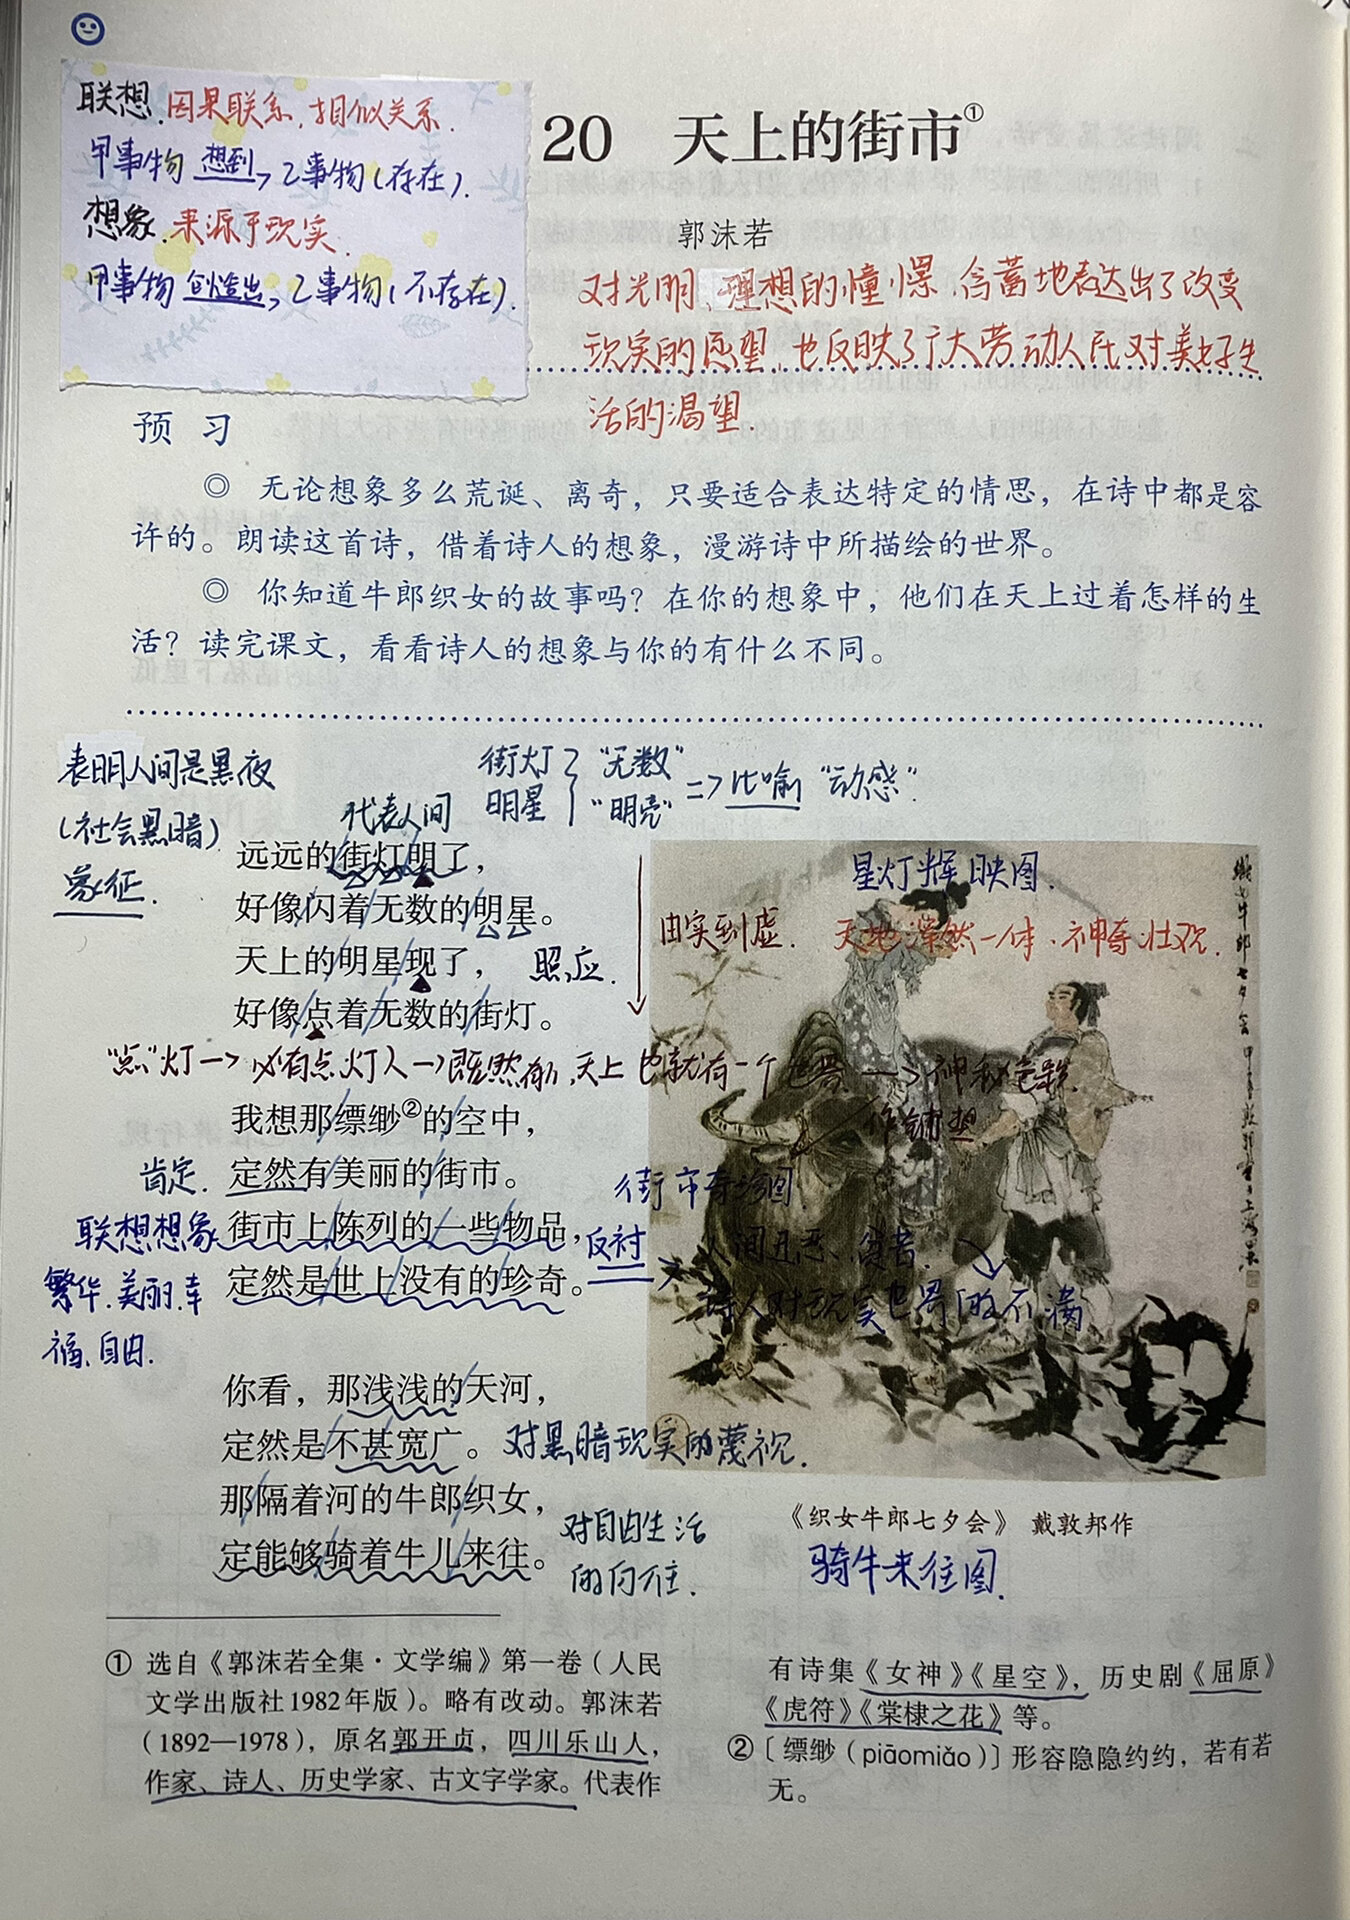 联想.因果联系.相似关系.
甲事物 想到→乙事物(存在).
想象.来源于现实.
甲事物 创造出→乙事物(不存在).
20 天上的街市①
郭沫若
对光明、理想的憧憬.含蓄地表达出了改变
现实的愿望,也反映了广大劳动人民对美好生
活的渴望.
预 习
◎ 无论想象多么荒诞、离奇，只要适合表达特定的情思，在诗中都是容
许的。朗读这首诗，借着诗人的想象，漫游诗中所描绘的世界。
◎ 你知道牛郎织女的故事吗？在你的想象中，他们在天上过着怎样的生
活？读完课文，看看诗人的想象与你的有什么不同。
表明人间是黑夜
(社会黑暗)
象征.
街灯 "无数"
明星 "明亮" => 比喻 "动感".
代表人间
远远的街灯明了，
好像闪着无数的明星。
天上的明星现了， 照应.
好像点着无数的街灯。
星灯辉映图.
由实到虚. 天地浑然一体.神奇壮观.
"点"灯→必有点灯人→既然有,天上也就有一个世界→神秘色彩.
作铺垫.
我想那缥缈②的空中，
肯定. 定然有美丽的街市。
联想想象 街市上陈列的一些物品，
定然是世上没有的珍奇。
繁华.美丽.幸
福、自由.
街市奇珍图
反衬→人间丑恶、贫苦.
诗人对现实世界的不满
你看，那浅浅的天河，
定然是不甚宽广。 对黑暗现实的蔑视.
那隔着河的牛郎织女，
定能够骑着牛儿来往。
对自由生活
的向往.
《织女牛郎七夕会》 戴敦邦作
骑牛来往图.
① 选自《郭沫若全集·文学编》第一卷（人民
文学出版社1982年版）。略有改动。郭沫若
（1892—1978），原名郭开贞，四川乐山人，
作家、诗人、历史学家、古文字学家。代表作
有诗集《女神》《星空》，历史剧《屈原》
《虎符》《棠棣之花》等。
② 〔缥缈（piāomiǎo）〕形容隐隐约约，若有若
无。